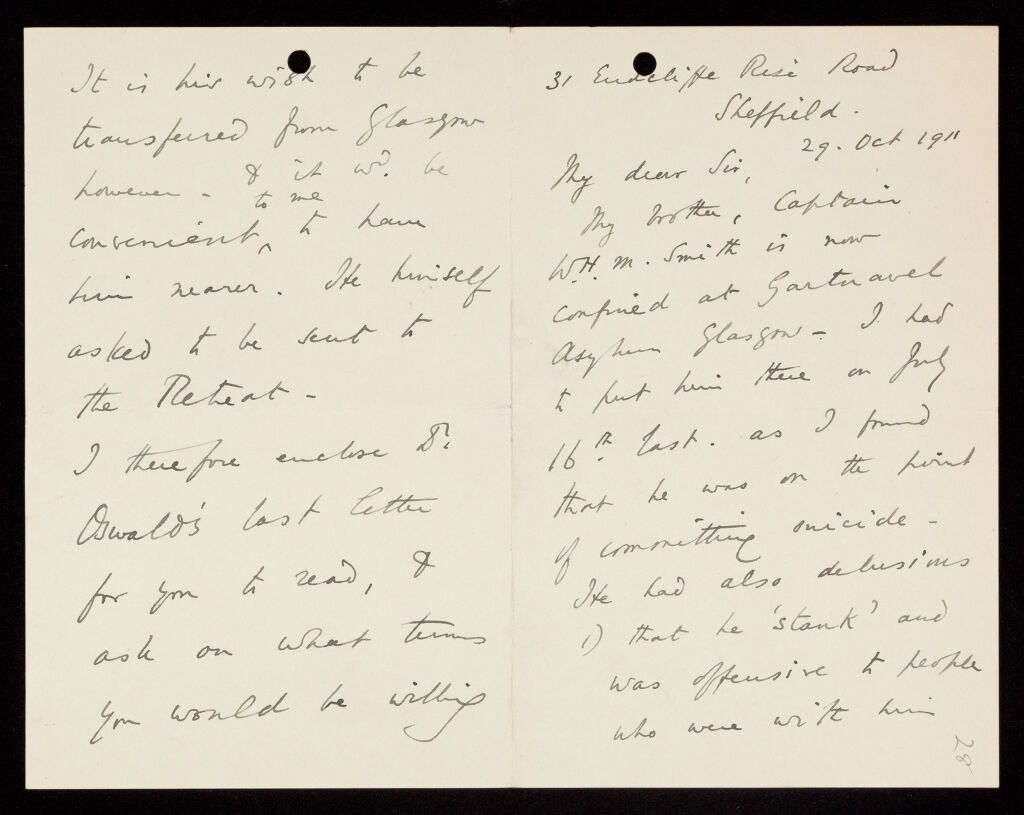 31 Endcliffe Rise Road
Sheffield.
29. Oct 1911
My dear Sir,
My brother, Captain
W.H. M. Smith is now
confined at Gartnavel
Asylum Glasgow - I had
to put him there on July
16th. last. as I found
that he was on the point
of committing suicide -
He had also delusions
1) that he 'stank' and
was offensive to people
who were with him
28
It is his wish to be
transferred from Glasgow
however - & it wd. be
to me
convenient ^ to have
him nearer. He himself
asked to be sent to
the Retreat -
I therefore enclose Dr.
Oswald's last letter
for you to read, &
ask on what terms
you would be willing